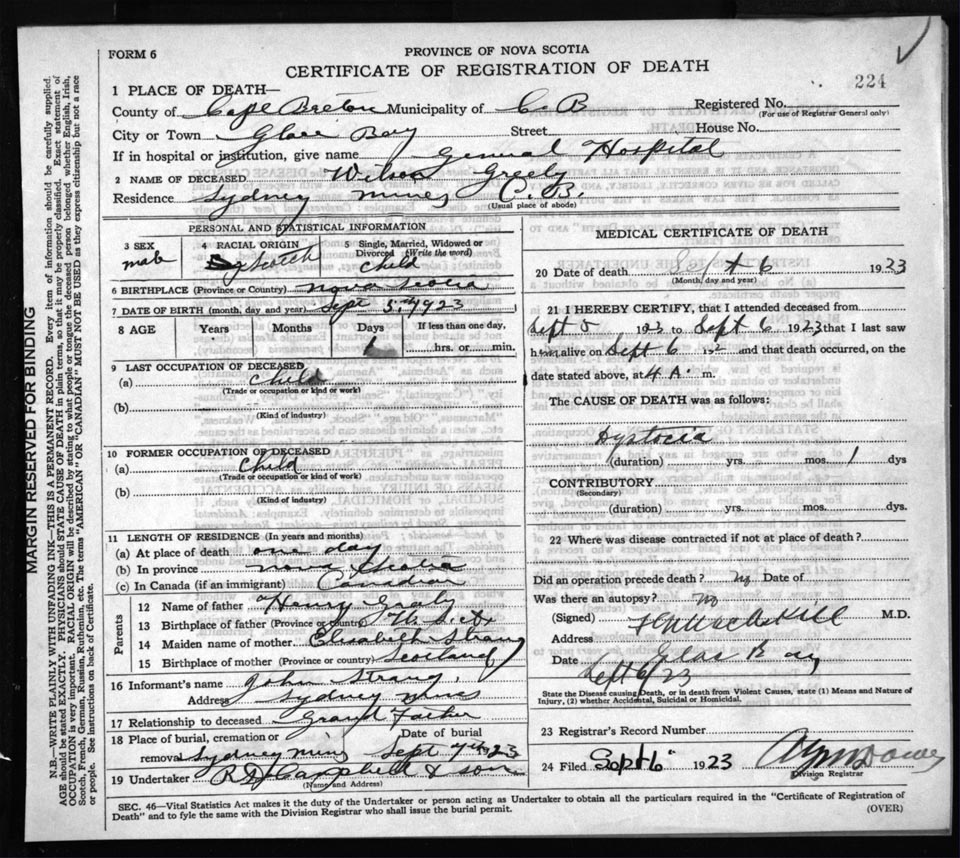 FORM 6
PROVINCE OF NOVA SCOTIA
CERTIFICATE OF REGISTRATION OF DEATH
224
1 PLACE OF DEATH—
County of Cape Breton Municipality of C. B Registered No.
(For use of Registrar General only)
City or Town Glace Bay Street House No.
If in hospital or institution, give name General Hospital
2 NAME OF DECEASED Wilson Greely
Residence Sydney Mines C. B.
(Usual place of abode)
PERSONAL AND STATISTICAL INFORMATION
3 SEX
male
4 RACIAL ORIGIN
Scotch
5 Single, Married, Widowed or Divorced (Write the word)
Child
6 BIRTHPLACE (Province or Country) Nova Scotia
7 DATE OF BIRTH (month, day and year) Sept 5th 1923
8 AGE Years Months Days If less than one day,
1 hrs. or min.
9 LAST OCCUPATION OF DECEASED
(a) Child
(Trade or occupation or kind or work)
(b)
(Kind of industry)
10 FORMER OCCUPATION OF DECEASED
(a) Child
(Trade or occupation or kind of work)
(b)
(Kind of industry)
11 LENGTH OF RESIDENCE (In years and months)
(a) At place of death one day
(b) In province Nova Scotia
(c) In Canada (if an immigrant) Canadian
Parents
12 Name of father Henry
13 Birthplace of father (Province or country)
14 Maiden name of mother Elizabeth Strang
15 Birthplace of mother (Province or country) Scotland
16 Informant's name John Strang
Address Sydney Mines
17 Relationship to deceased Grand Father
18 Place of burial, cremation or removal Sydney Mines Date of burial Sept 7th 1923
19 Undertaker & son
(Name and Address)
MEDICAL CERTIFICATE OF DEATH
20 Date of death Sept 6 1923
(Month, day and year)
21 I HEREBY CERTIFY, that I attended deceased from
Sept 5 192 to Sept 6 1923 that I last saw
him alive on Sept 6 192 and that death occurred, on the
date stated above, at 4 A. m.
The CAUSE OF DEATH was as follows:
Dystocia
(duration) yrs. mos. 1 dys
CONTRIBUTORY
(Secondary)
(duration) yrs. mos. dys.
22 Where was disease contracted if not at place of death?
Did an operation precede death? No Date of
Was there an autopsy? No
(Signed) M.D.
Address Glace Bay
Date Sept 6/23
State the Disease causing Death, or in death from Violent Causes, state (1) Means and Nature of Injury, (2) whether Accidental, Suicidal or Homicidal.
23 Registrar's Record Number
24 Filed Sept 6 1923
Division Registrar
SEC. 46—Vital Statistics Act makes it the duty of the Undertaker or person acting as Undertaker to obtain all the particulars required in the "Certificate of Registration of
Death" and to fyle the same with the Division Registrar who shall issue the burial permit. (OVER)
MARGIN RESERVED FOR BINDING
N.B.—WRITE PLAINLY WITH UNFADING INK—THIS IS A PERMANENT RECORD. Every item of information should be carefully supplied.
AGE should be stated EXACTLY. PHYSICIANS should STATE CAUSE OF DEATH in plain terms, so that it may be properly classified. Exact statement of
OCCUPATION is very important. RACIAL ORIGIN will be described by stating to what people or tongue the deceased person belonged whether English, Irish,
Scotch, French, German, Russian, Ruthenian, etc. The terms "AMERICAN" OR "CANADIAN" MUST NOT BE USED as they express citizenship but not a race
or people. See instructions on back of Certificate.